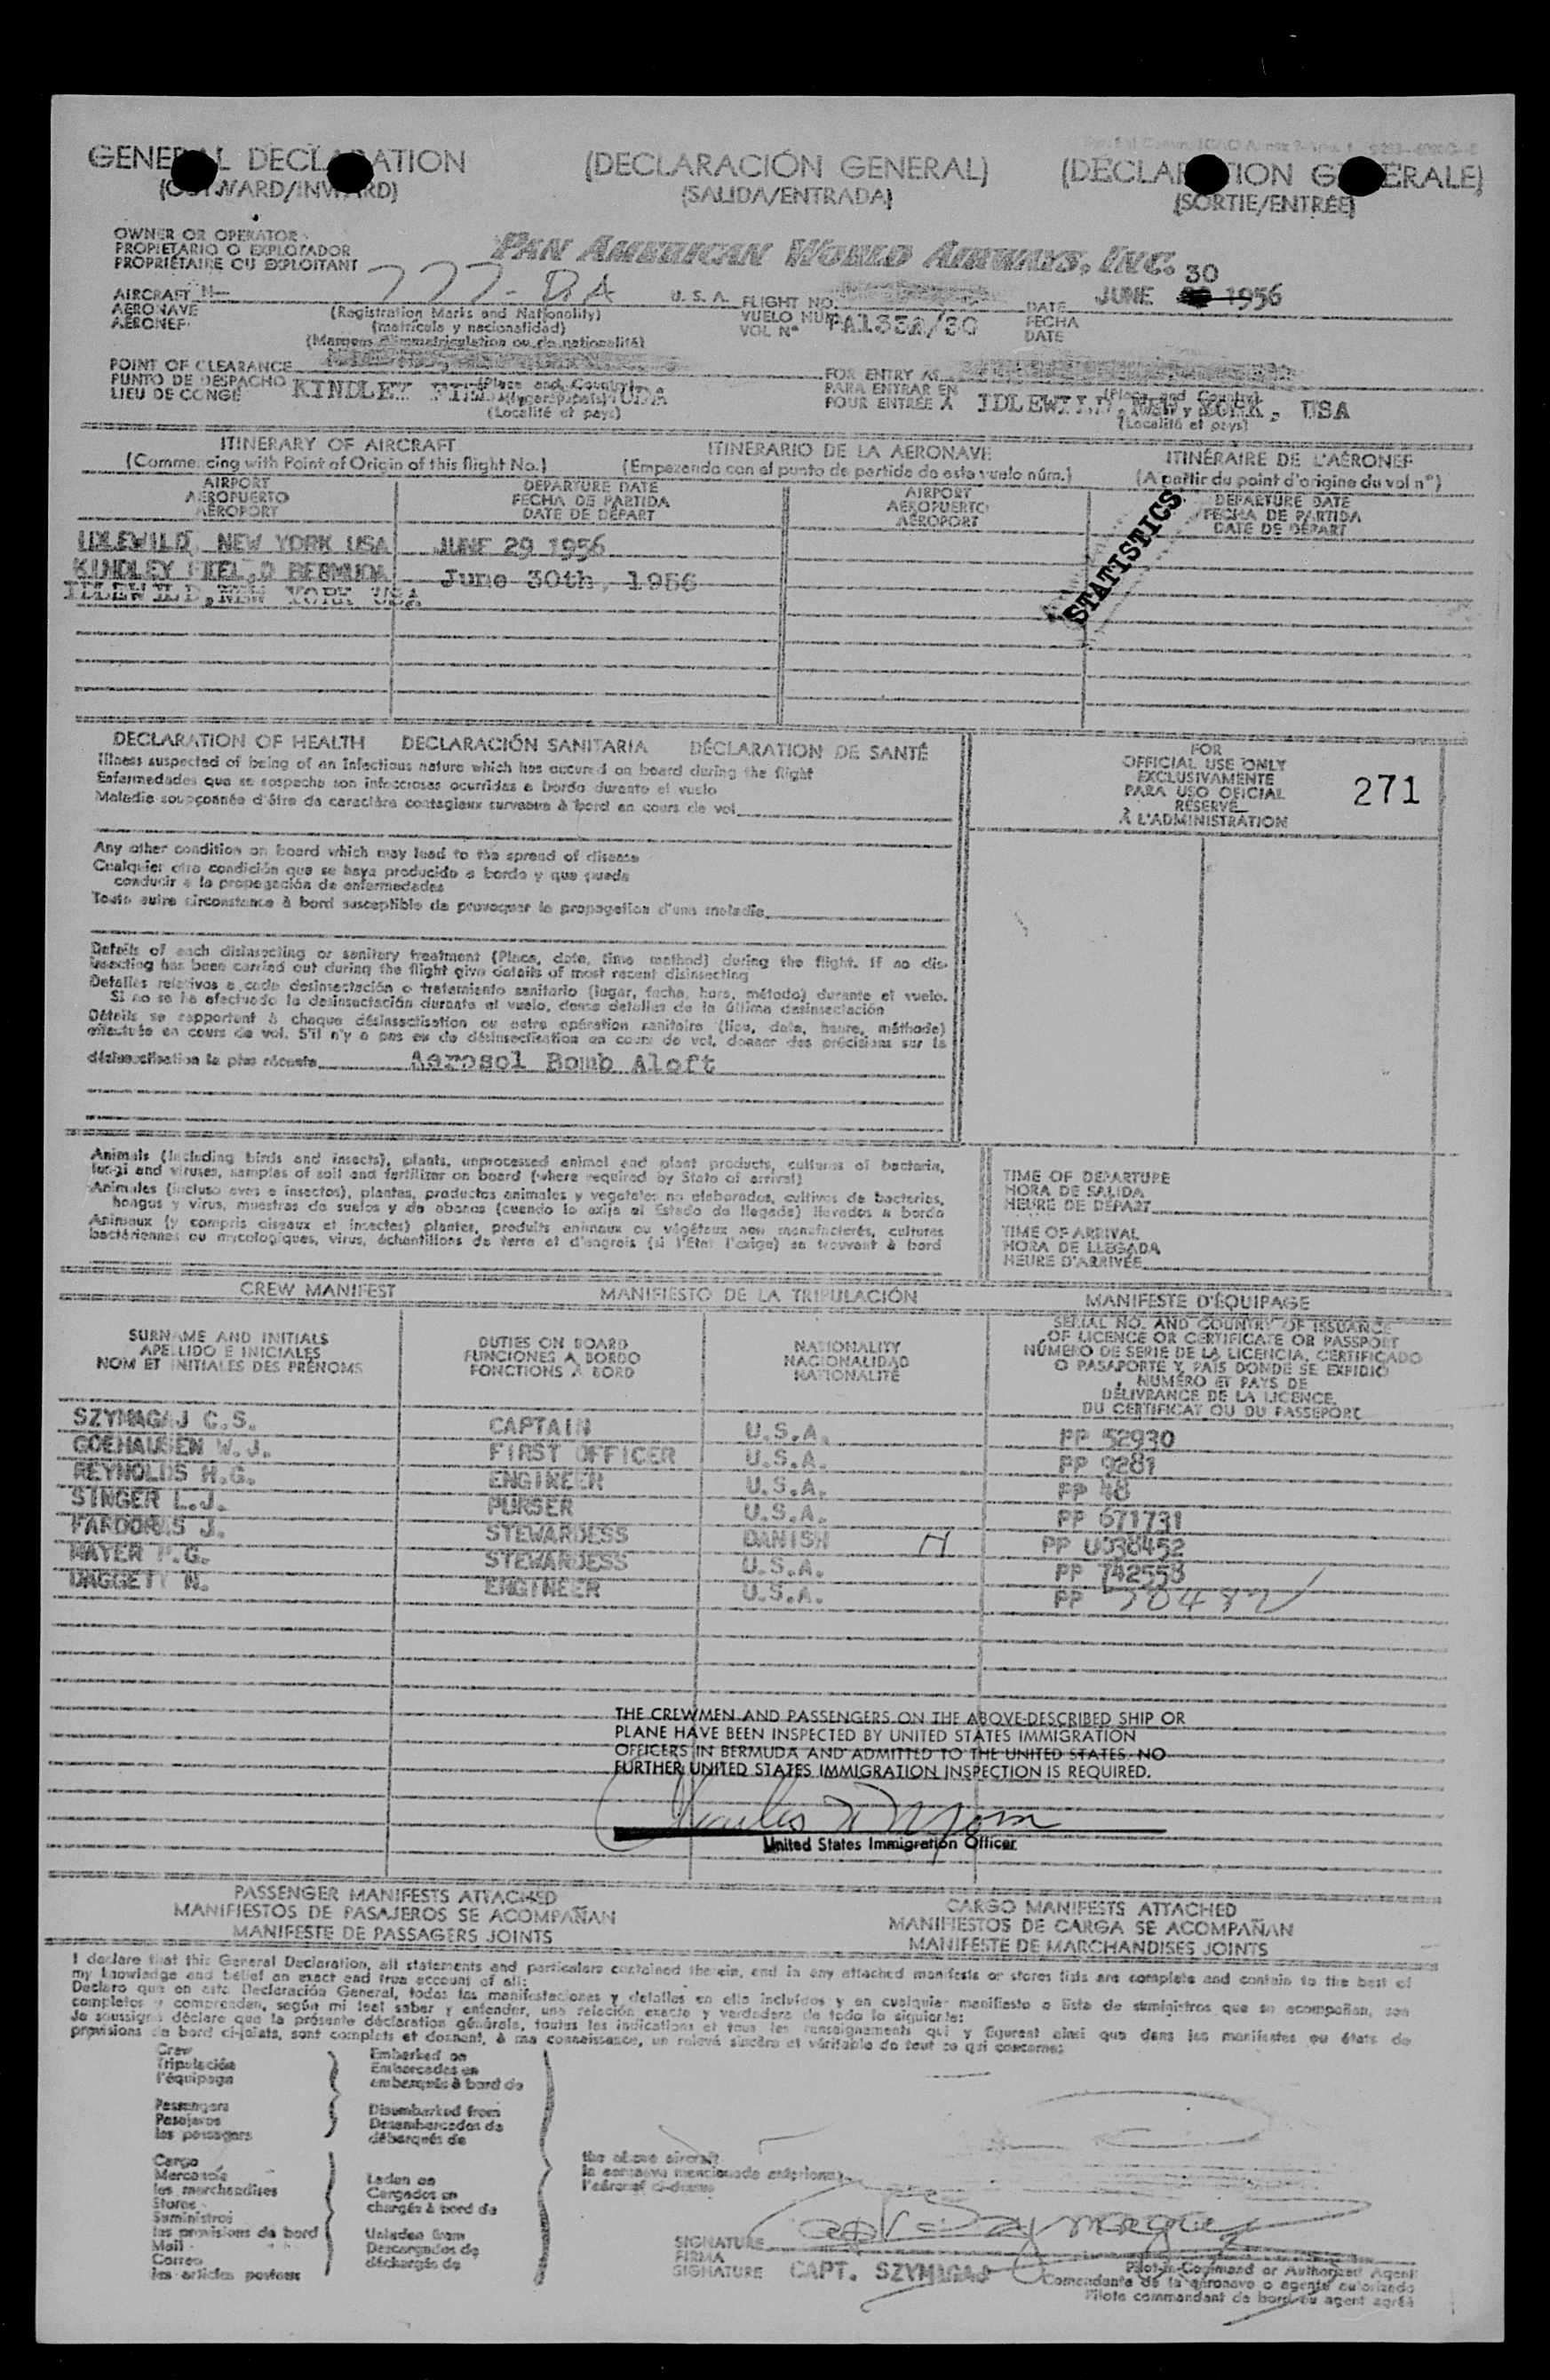 GENERAL DECLARATION (DECLARACIÓN GENERAL) (DECLARATION GENERALE)
(OUTWARD/INWARD) (SALIDA/ENTRADA) (SORTIE/ENTRÉE)
OWNER OR OPERATOR
PROPIETARIO O EXPLOTADOR
PROPRIÉTAIRE OU EXPLOITANT
PAN AMERICAN WORLD AIRWAYS, INC.
AIRCRAFT N- U. S. A. FLIGHT NO. DATE JUNE 30 1956
AERONAVE (Registration Marks and Nationality) VUELO NÚM. FECHA
AÉRONEF (matrícula y nacionalidad) VOL N° PA133A/30 DATE
(Marques d'immatriculation ou de nationalité)
POINT OF CLEARANCE FOR ENTRY AT
PUNTO DE DESPACHO KINDLEY (Place and Country) PARA ENTRAR EN (Place and Country)
LIEU DE CONGÉ (Localité et pays) POUR ENTRÉE À IDLEWILD, NEW YORK, USA
(Localité et pays)
ITINERARY OF AIRCRAFT ITINERARIO DE LA AERONAVE ITINÉRAIRE DE L'AÉRONEF
(Commencing with Point of Origin of this flight No.) (Empezando con el punto de partida de este vuelo núm.) (A partir du point d'origine du vol n°)
AIRPORT DEPARTURE DATE AIRPORT DEPARTURE DATE
AEROPUERTO FECHA DE PARTIDA AEROPUERTO FECHA DE PARTIDA
AÉROPORT DATE DE DÉPART AÉROPORT DATE DE DÉPART
STATISTICS
IDLEWILD, NEW YORK USA JUNE 29 1956
KINDLEY FIEL,D BERMUDA June 30th, 1956
IDLEWILD,NEW YORK USA
DECLARATION OF HEALTH DECLARACIÓN SANITARIA DÉCLARATION DE SANTÉ
Illness suspected of being of an infectious nature which has occured on board during the flight
Enfermedades que se sospecha son infecciosas ocurridas a bordo durante el vuelo
Maladie soupçonnée d'être de caractère contagieux survenue à bord en cours de vol
FOR
OFFICIAL USE ONLY
EXCLUSIVAMENTE
PARA USO OFICIAL
RÉSERVÉ
À L'ADMINISTRATION
271
Any other condition on board which may lead to the spread of disease
Cualquier otra condición que se haya producido a bordo y que pueda
conducir a la propagación de enfermedades
Toute autre circonstance à bord susceptible de provoquer la propagation d'une maladie
Details of each disinsecting or sanitary treatment (Place, date, time method) during the flight. If no dis-
insecting has been carried out during the flight give details of most recent disinsecting
Detalles relativos a cada desinsectación o tratamiento sanitario (lugar, fecha, hora, método) durante el vuelo.
Si no se ha efectuado la desinsectación durante el vuelo, dense detalles de la última desinsectación
Détails se rapportent à chaque désinsectisation ou autre opération sanitaire (lieu, date, heure, méthode)
effectuée en cours de vol. S'il n'y a pas eu de désinsectisation en cours de vol, donner des précisions sur la
désinsectisation la plus récente Aerosol Bomb Aloft
Animals (including birds and insects), plants, unprocessed animal and plant products, cultures of bacteria,
fungi and viruses, samples of soil and fertilizer on board (where required by State of arrival)
Animales (incluso aves e insectos), plantas, productos animales y vegetales no elaborados, cultivos de bacterias,
hongos y virus, muestras de suelos y de abonos (cuando lo exija el Estado de llegada) llevados a bordo
Animaux (y compris oiseaux et insectes) plantes, produits animaux ou végétaux non manufacturés, cultures
bactériennes ou mycologiques, virus, échantillons de terre et d'engrais (si l'État l'exige) se trouvant à bord
TIME OF DEPARTURE
HORA DE SALIDA
HEURE DE DÉPART
TIME OF ARRIVAL
HORA DE LLEGADA
HEURE D'ARRIVÉE
CREW MANIFEST MANIFIESTO DE LA TRIPULACIÓN MANIFESTE D'ÉQUIPAGE
SURNAME AND INITIALS
APELLIDO E INICIALES
NOM ET INITIALES DES PRÉNOMS
DUTIES ON BOARD
FUNCIONES A BORDO
FONCTIONS À BORD
NATIONALITY
NACIONALIDAD
NATIONALITÉ
SERIAL NO. AND COUNTRY OF ISSUANCE
OF LICENCE OR CERTIFICATE OR PASSPORT
NÚMERO DE SERIE DE LA LICENCIA, CERTIFICADO
O PASAPORTE Y PAÍS DONDE SE EXPIDIÓ
NUMÉRO ET PAYS DE
DÉLIVRANCE DE LA LICENCE
DU CERTIFICAT OU DU PASSEPORT
SZYMAGAJ C.S. CAPTAIN U.S.A. PP 52930
GOEHAUSEN W.J. FIRST OFFICER U.S.A. PP 9281
REYNOLDS H.G. ENGINEER U.S.A. PP 48
SINGER L.J. PURSER U.S.A. PP 671731
J. STEWARDESS DANISH H PP U038452
MAYER G. STEWARDESS U.S.A. PP 742558
DAGGETT N. ENGINEER U.S.A. PP
THE CREWMEN AND PASSENGERS ON THE ABOVE-DESCRIBED SHIP OR
PLANE HAVE BEEN INSPECTED BY UNITED STATES IMMIGRATION
OFFICERS IN BERMUDA AND ADMITTED TO THE UNITED STATES. NO
FURTHER UNITED STATES IMMIGRATION INSPECTION IS REQUIRED.
United States Immigration Officer
PASSENGER MANIFESTS ATTACHED CARGO MANIFESTS ATTACHED
MANIFIESTOS DE PASAJEROS SE ACOMPAÑAN MANIFIESTOS DE CARGA SE ACOMPAÑAN
MANIFESTE DE PASSAGERS JOINTS MANIFESTE DE MARCHANDISES JOINTS
I declare that this General Declaration, all statements and particulars contained therein, and in any attached manifests or stores lists are complete and contain to the best of
my knowledge and belief an exact and true account of all:
Declaro que en esta Declaración General, todas las manifestaciones y detalles en ella incluídos y en cualquier manifiesto o lista de suministros que se acompañan, son
completos y comprenden, según mi leal saber y entender, una relación exacta y verdadera de todo lo siguiente:
Je soussigné déclare que la présente déclaration générale, toutes les indications et tous les renseignements qui y figurent ainsi que dans les manifestes ou états de
provisions de bord ci-joints, sont complets et donnent, à ma connaissance, un relevé sincère et véritable de tout ce qui concerne:
Crew Embarked on
Tripulación Embarcados en
l'équipage embarqués à bord de
Passengers Disembarked from
Pasajeros Desembarcados de
les passagers débarqués de
Cargo the above aircraft
Mercancía Laden on la aeronave mencionada anteriormente
les marchandises Cargados en l'aéronef ci-dessus
Stores chargés à bord de
Suministros
les provisions de bord Unladen from
Mail Descargados de
Correo déchargés de
les articles postaux
SIGNATURE
FIRMA
SIGNATURE CAPT. SZYMAGAJ
Pilot-in-Command or Authorized Agent
Comandante de la aeronave o agente autorizado
Pilote commandant de bord ou agent agréé